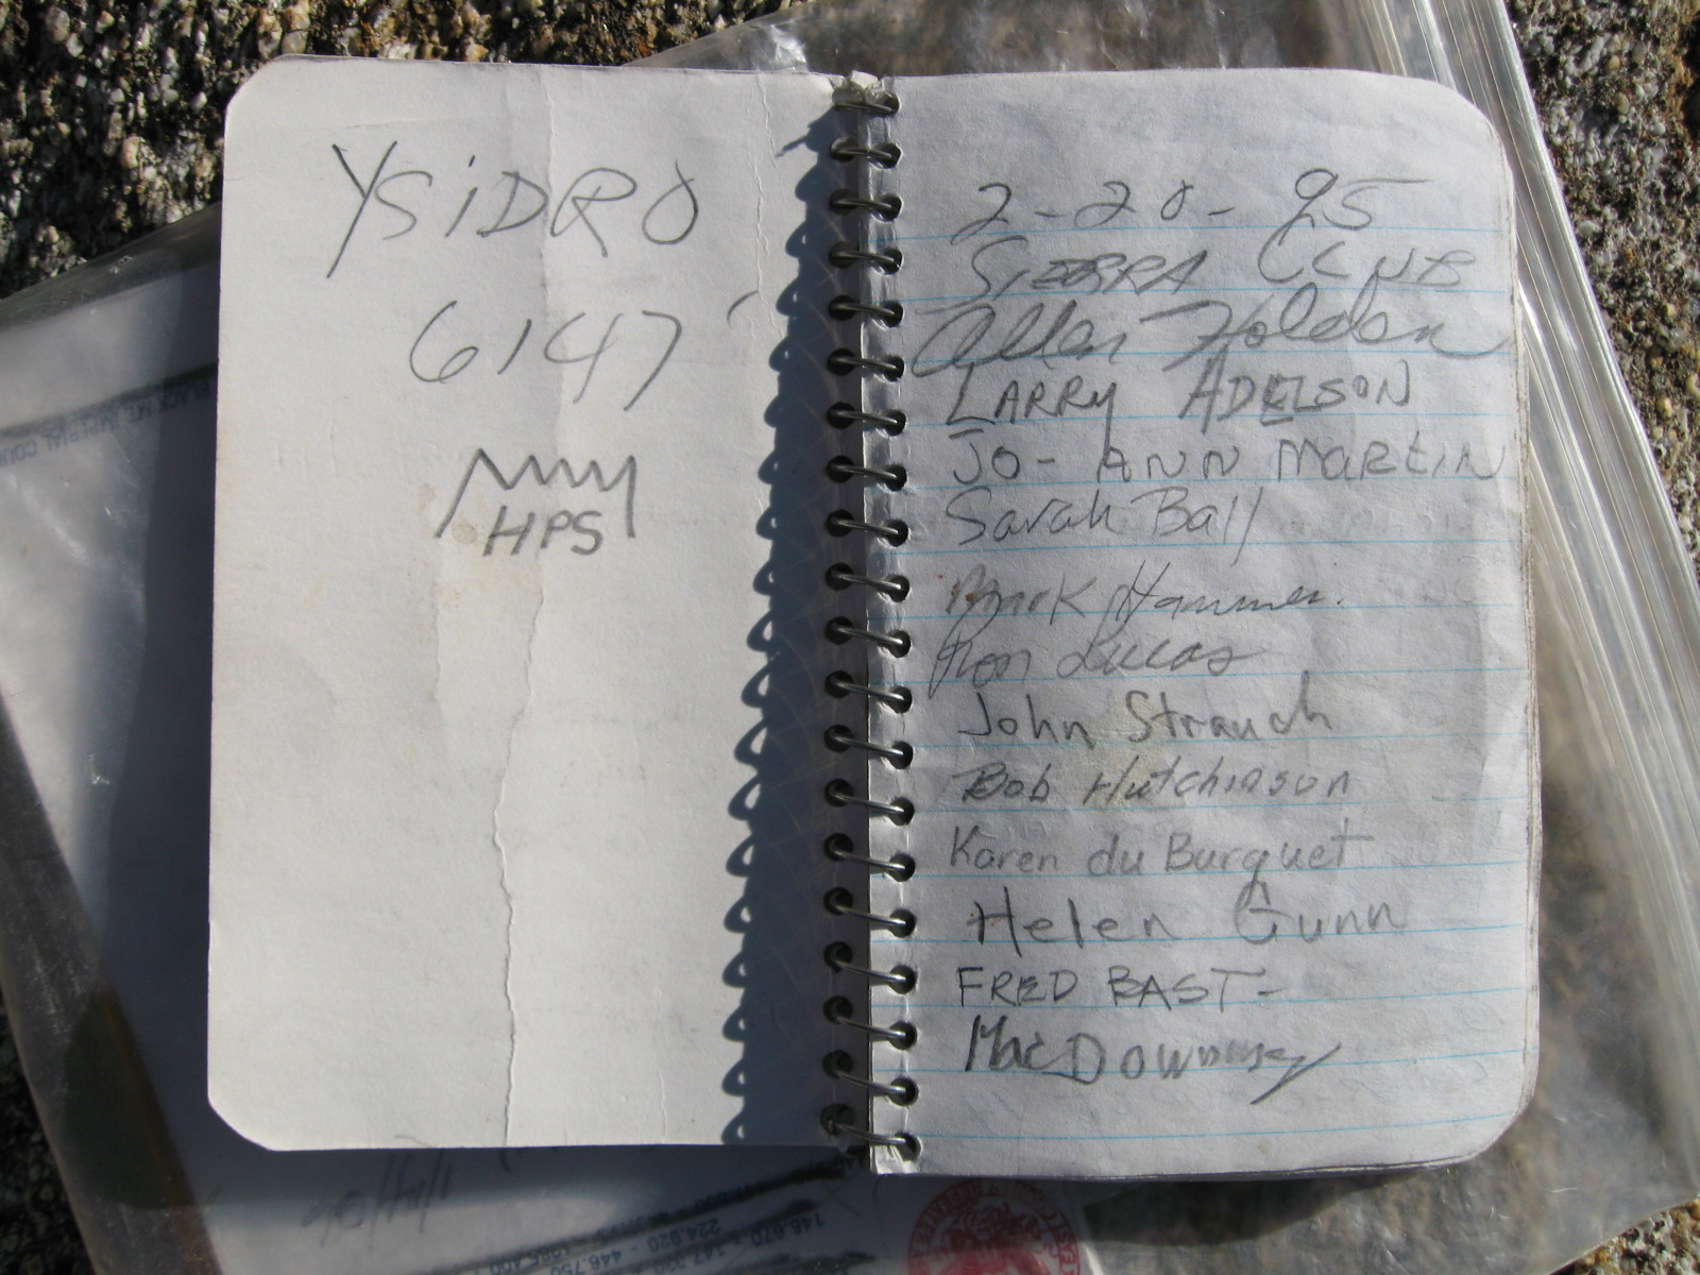 YSiDRO
6147'
HPS
2-20-95
SIERRA CLUB
Allen Holden
LARRY ADELSON
JO-ANN MARTIN
Sarah Ball
Mark Hammer
Ron Lucas
John Strauch
Bob Hutchinson
Karen du Burguet
Helen Gunn
FRED BAST-
Mac Downey
146.670 - 147
224.920 - 446.750